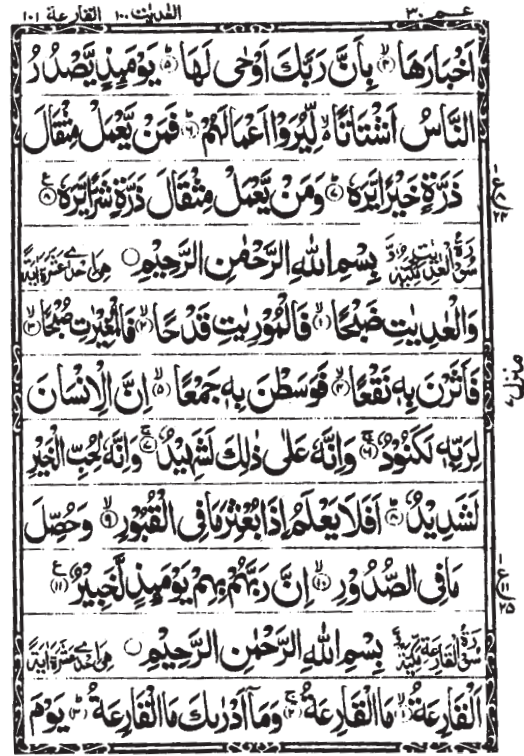 عم ٣٠ العديت ١٠٠ القارعة ١٠١
اَخْبَارَهَا ﴿٤﴾ بِاَنَّ رَبَّكَ اَوْحٰى لَهَا ﴿٥﴾ يَوْمَىِٕذٍ يَّصْدُرُ
النَّاسُ اَشْتَاتًا لِّيُرَوْا اَعْمَالَهُمْ ﴿٦﴾ فَمَنْ يَّعْمَلْ مِثْقَالَ
ذَرَّةٍ خَيْرًا يَّرَهٗ ﴿٧﴾ وَمَنْ يَّعْمَلْ مِثْقَالَ ذَرَّةٍ شَرًّا يَّرَهٗ ﴿٨﴾
سُوْرَةُ الْعٰدِيٰتِ مَكِّيَّةٌ بِسْمِ اللّٰهِ الرَّحْمٰنِ الرَّحِيْمِ هِيَ اِحْدٰى عَشْرَةَ اٰيَةً
وَالْعٰدِيٰتِ ضَبْحًا ﴿١﴾ فَالْمُوْرِيٰتِ قَدْحًا ﴿٢﴾ فَالْمُغِيْرٰتِ صُبْحًا ﴿٣﴾
فَاَثَرْنَ بِهٖ نَقْعًا ﴿٤﴾ فَوَسَطْنَ بِهٖ جَمْعًا ﴿٥﴾ اِنَّ الْاِنْسَانَ
لِرَبِّهٖ لَكَنُوْدٌ ﴿٦﴾ وَاِنَّهٗ عَلٰى ذٰلِكَ لَشَهِيْدٌ ﴿٧﴾ وَاِنَّهٗ لِحُبِّ الْخَيْرِ
لَشَدِيْدٌ ﴿٨﴾ اَفَلَا يَعْلَمُ اِذَا بُعْثِرَ مَا فِى الْقُبُوْرِ ﴿٩﴾ وَحُصِّلَ
مَا فِى الصُّدُوْرِ ﴿١٠﴾ اِنَّ رَبَّهُمْ بِهِمْ يَوْمَىِٕذٍ لَّخَبِيْرٌ ﴿١١﴾
سُوْرَةُ الْقَارِعَةِ مَكِّيَّةٌ بِسْمِ اللّٰهِ الرَّحْمٰنِ الرَّحِيْمِ هِيَ اِحْدٰى عَشْرَةَ اٰيَةً
اَلْقَارِعَةُ ﴿١﴾ مَا الْقَارِعَةُ ﴿٢﴾ وَمَآ اَدْرٰىكَ مَا الْقَارِعَةُ ﴿٣﴾ يَوْمَ
ع ٨ ٢٤
منزل ٧
ع ١١ ٢٥